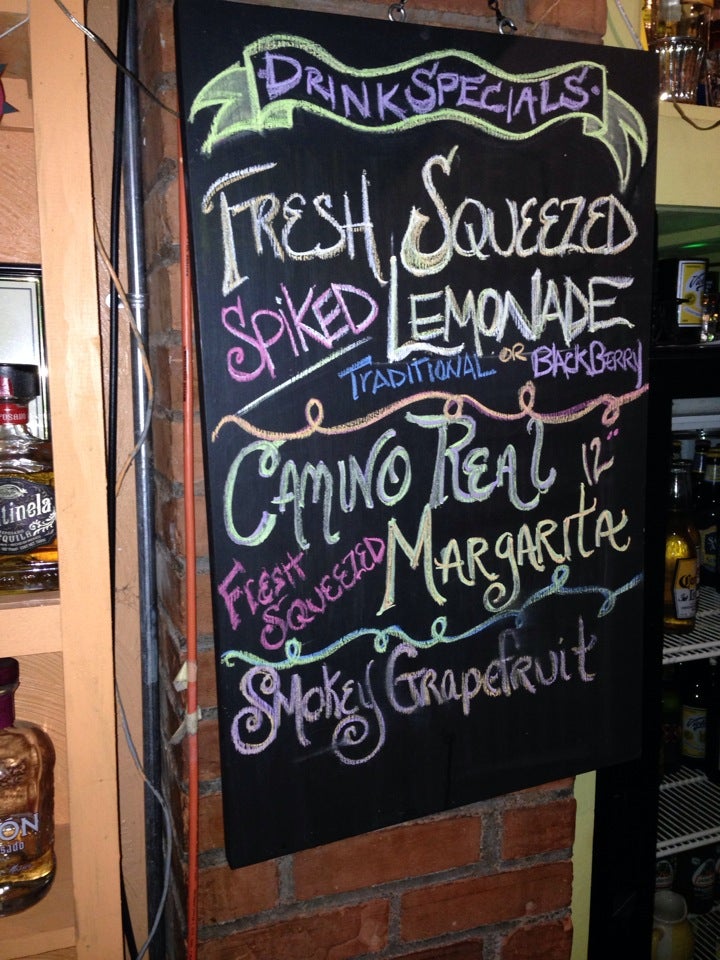 DRINK SPECIALS
FRESH SQUEEZED
SPIKED LEMONADE
TRADITIONAL OR BLACKBERRY
CAMINO REAL 12"
FRESH SQUEEZED MARGARITA
SMOKEY GRAPEFRUIT
tinela
TEQUILA
ÓN
sado